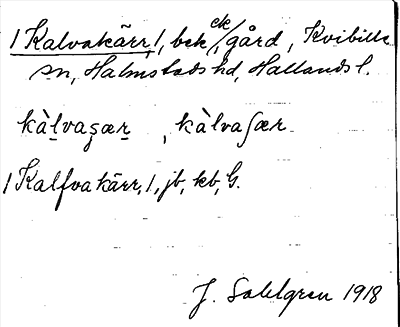 /Kalvakärr/, bek ck/, gård, Kvibille
sn, Halmstads hd, Hallands l.
kàlvaşær , kàlvaʃær
/Kalfvakärr,/, jb, kb, G.
J. Sahlgren 1918